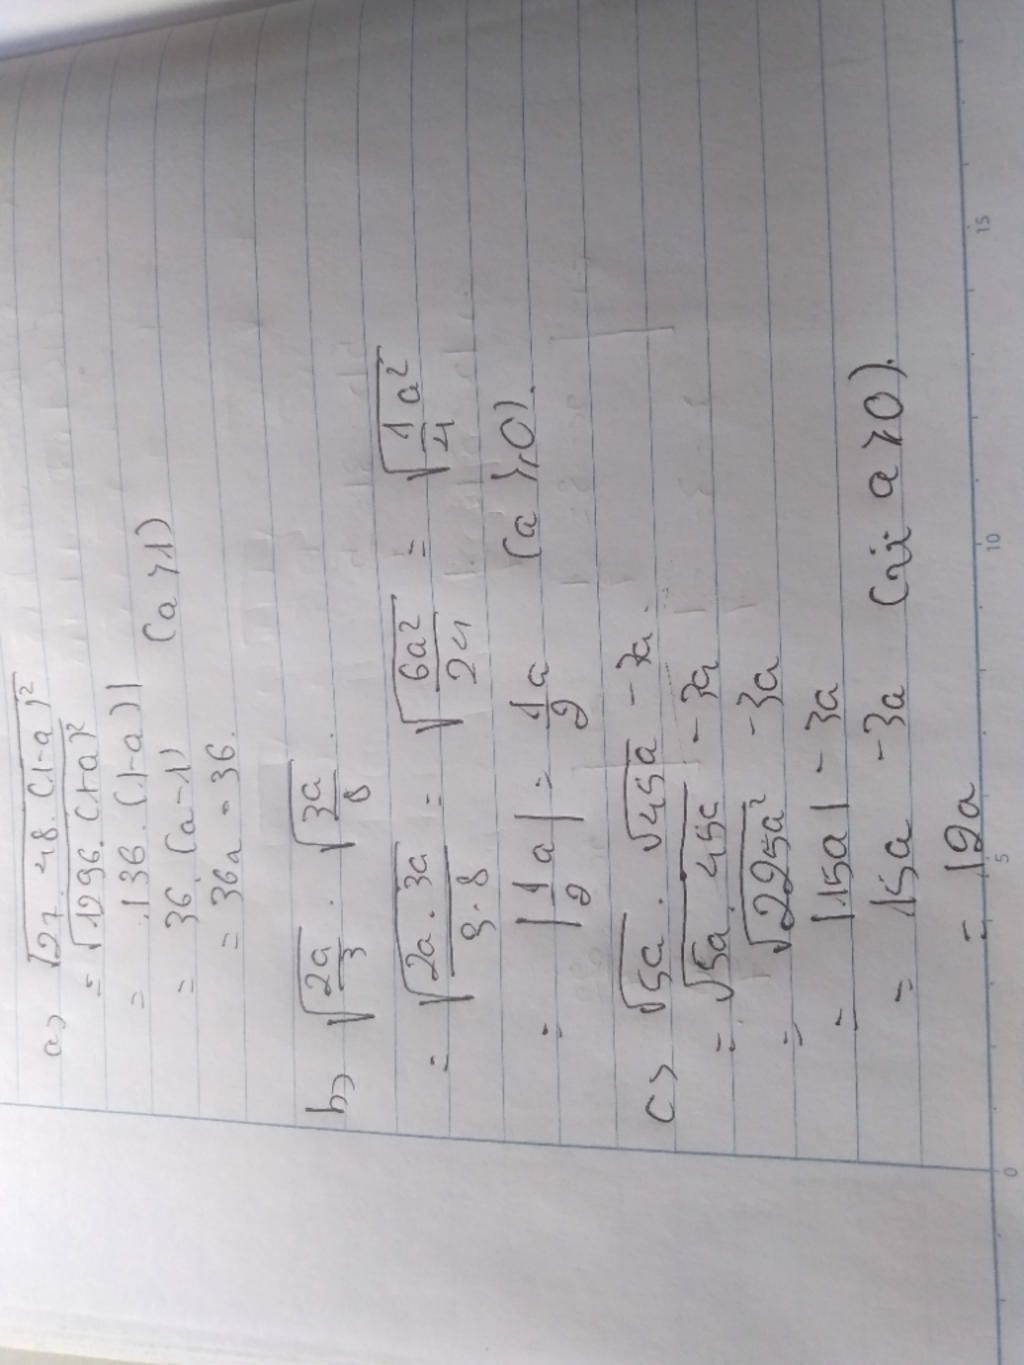 a> √27.48.(1-a)²
= √1296.(1-a)²
= |36.(1-a)|
= 36.(a-1) (a>1)
= 36a-36.
b> √2a/3 . √3a/8
= √2a.3a/3.8 = √6a²/24 = √1/4 a²
= |1/2 a| = 1/2 a (a ≥ 0).
c> √5a . √45a - 3a
= √5a.45a - 3a
= √225a² - 3a
= |15a| - 3a
= 15a - 3a (vì a ≥ 0).
= 12a
0 5 10 15